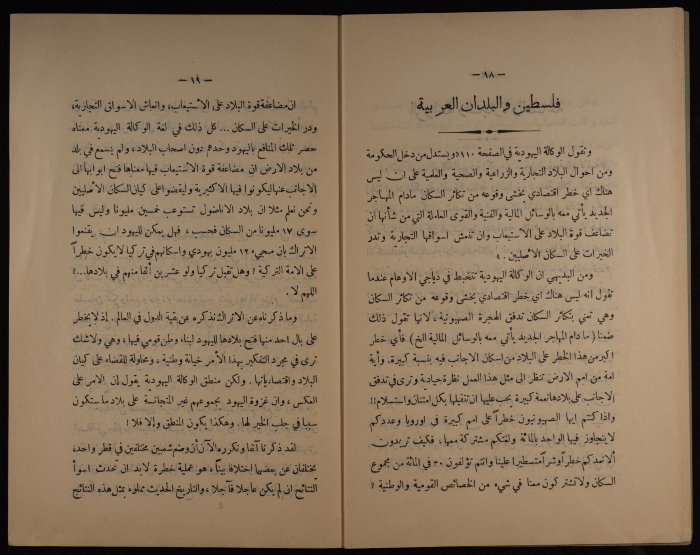 — ١٨ —
فلسطين والبلدان العربية
وتقول الوكالة اليهودية في الصفحة ١١٠ «ويستدل من دخل الحكومة
ومن احوال البلاد التجارية والزراعية والصحية والعلمية على ان ليس
هناك اي خطر اقتصادي يخشى وقوعه من تكاثر السكان مادام المهاجر
الجديد يأتي معه بالوسائل المالية والفنية والقوى العاملة التي من شأنها ان
تضاعف قوة البلاد على الاستيعاب وان تنعش اسواقها التجارية وتدر
الخيرات على السكان الاصليين . »
ومن البديهي ان الوكالة اليهودية تتخبط في دياجي الاوهام عندما
تقول انه ليس هناك اي خطر اقتصادي يخشى وقوعه من تكاثر السكان
وهي تعني بتكاثر السكان تدفق الهجرة الصهيونية ، لانها تقول ذلك
ضمنا ( مادام المهاجر الجديد يأتي معه بالوسائل المالية الخ ) فأي خطر
اكبر من هذا الخطر على البلاد من اسكان الاجانب فيه بنسبة كبيرة. وأية
امة من امم الارض تنظر الى مثل هذا العمل نظرة حيادية وترى في تدفق
الاجانب على بلادها نعمة كبيرة يجب عليها ان تتقبلها بكل امتنان واستسلام !!
واذا كنتم ايها الصهيونيون خطراً على امم كبيرة في اوروبا وعددكم
لايتجاوز فيها الواحد بالمائة ولغتكم مشتركة معها، فكيف تريدون
ألا نعدكم خطراً وشراً متسطيرا علينا وانتم تؤلفون ٣٠ في المائة من مجموع
السكان ولا تشتركون معنا في شيء من الخصائص القومية والوطنية ؟
— ١٩ —
ان مضاعفة قوة البلاد على الاستيعاب، وانعاش الاسواق التجارية،
ودر الخيرات على السكان ... كل ذلك في لغة الوكالة اليهودية معناه
حصر تلك المنافع باليهود وحدهم دون اصحاب البلاد، ولم يسمع في بلد
من بلاد الارض ان مضاعفة قوة الاستيعاب فيها معناها فتح ابوابها الى
الاجانب عنها ليكونوا فيها الاكثرية وليقضوا على كيان السكان الاصليين
ونحن نعلم مثلا ان بلاد الاناضول تستوعب خمسين مليونا وليس فيها
سوى ١٧ مليونا من السكان فحسب ، فهل يمكن لليهود ان يقنعوا
الاتراك بان مجيء ١٢ مليون يهودي واسكانهم في تركيا لا يكون خطراً
على الامة التركية ؟ وهل تقبل تركيا ولو عشرين ألفا منهم في بلادها...؟
اللهم لا .
وما ذكرناه عن الاتراك نذكره عن بقية الدول في العالم . اذ لا يخطر
على بال احد منها فتح بلادها لليهود لبناء وطن قومي فيها ، وهي ولاشك
ترى في مجرد التفكير بهذا الأمر خيانة وطنية ، ومحاولة للقضاء على كيان
البلاد واقتصادياتها . ولكن منطق الوكالة اليهودية يقول ان الامر على
العكس ، وان غزوة اليهود بجموعهم غير المتجانسة على بلاد ما ستكون
سببا في جلب الخير لها . وهكذا يكون المنطق والا فلا !
لقد ذكرنا آنفا ونكرره الآن أن وضع شعبين مختلفين في قطر واحد،
يختلفان عن بعضهما اختلافا بيناً ، هو عملية خطرة لابد ان تحدث اسوأ
النتائج ان لم يكن عاجلا فآجلا ، والتاريخ الحديث مملوء بمثل هذه النتائج